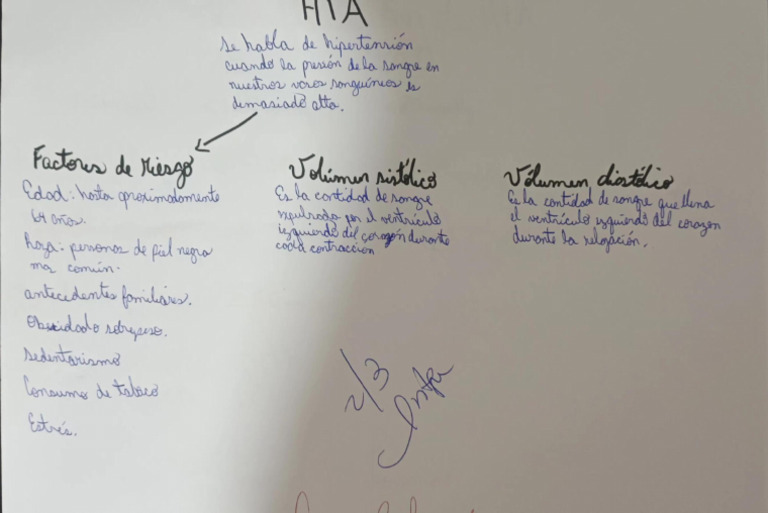 HTA
Se habla de hipertensión
cuando la presión de la sangre en
nuestros vasos sanguíneos es
demasiado alta.
Factores de riesgo
Edad: hasta aproximadamente
64 años.
Raza: personas de piel negra
mas común.
antecedentes familiares.
Obesidad o sobrepeso.
Sedentarismo
Consumo de tabaco
Estrés.
Volúmen sistólico
Es la cantidad de sangre
expulsada por el ventrículo
izquierdo del corazón durante
cada contracción
Vólumen diastólico
Es la cantidad de sangre que llena
el ventrículo izquierdo del corazon
durante la relajación.
2/3